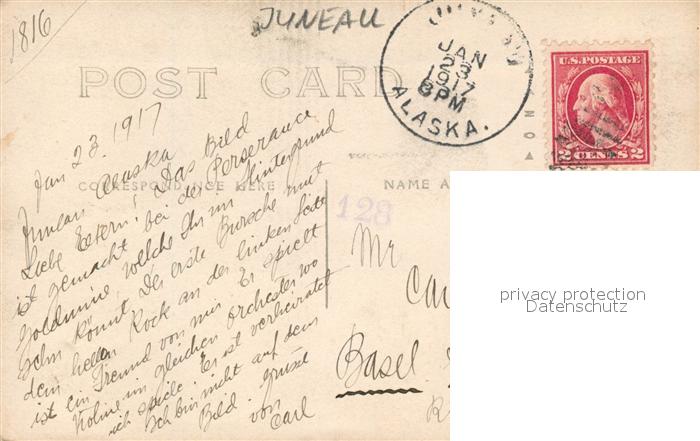 1816
JUNEAU
JAN
23
1917
8PM
ALASKA.
U.S. POSTAGE
2 CENTS 2
POST CARD
CORRESPONDENCE HERE
NAME A
128
ON
Jan 23. 1917
Juneau Alaska
Liebe Eltern! Das Bild
ist gemacht bei der Perserance
Goldmine, welche Ihr im Hintergrund
sehn könnt. Der erste Bursche mit
dem hellen Rock an der linken Seite
ist ein Freund von mir. Er spielt
Violine im gleichen Orchester wo
ich spiele. Er ist verheiratet
Ich bin nicht auf dem
Bild. Grüsse
von
Carl
Mr
Ca
Basel
privacy protection
Datenschutz